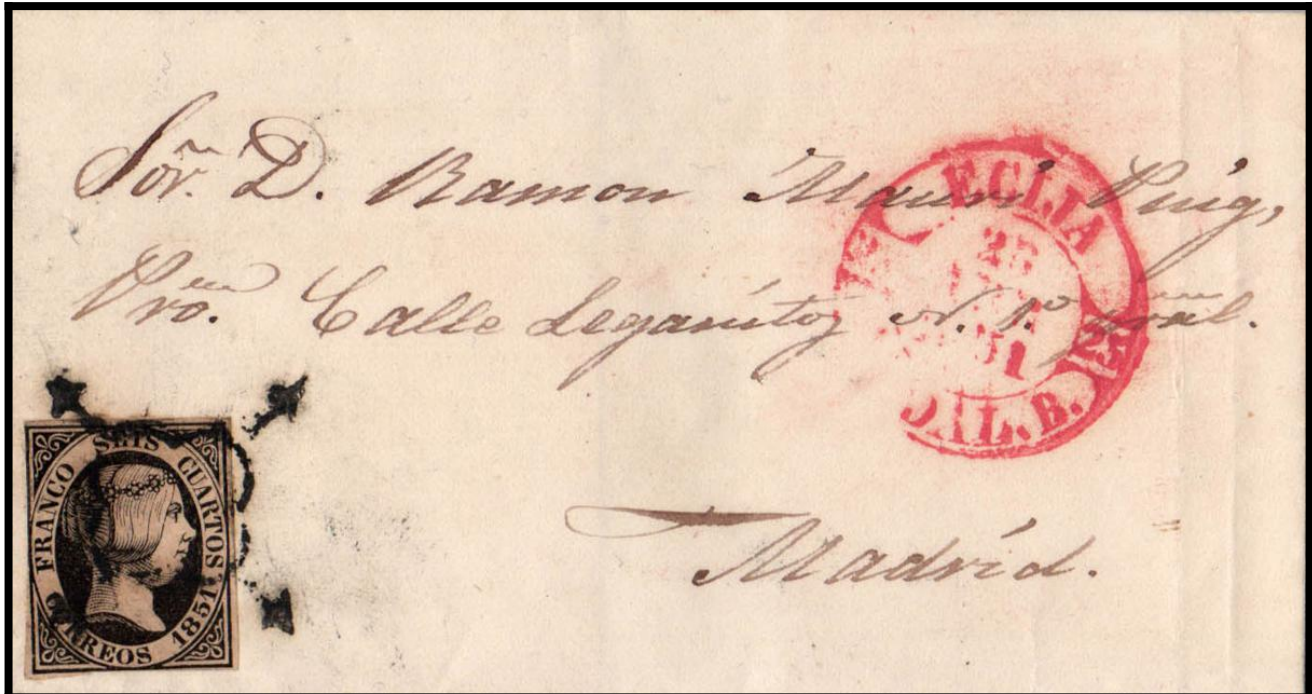 Sor. D. Ramon Mauri Puig,
Pro. Calle Leganitos N. 1.º pral.
Madrid.
ECIJA
28
51
25
DAL. B.
FRANCO SEIS CUARTOS
CORREOS 1851